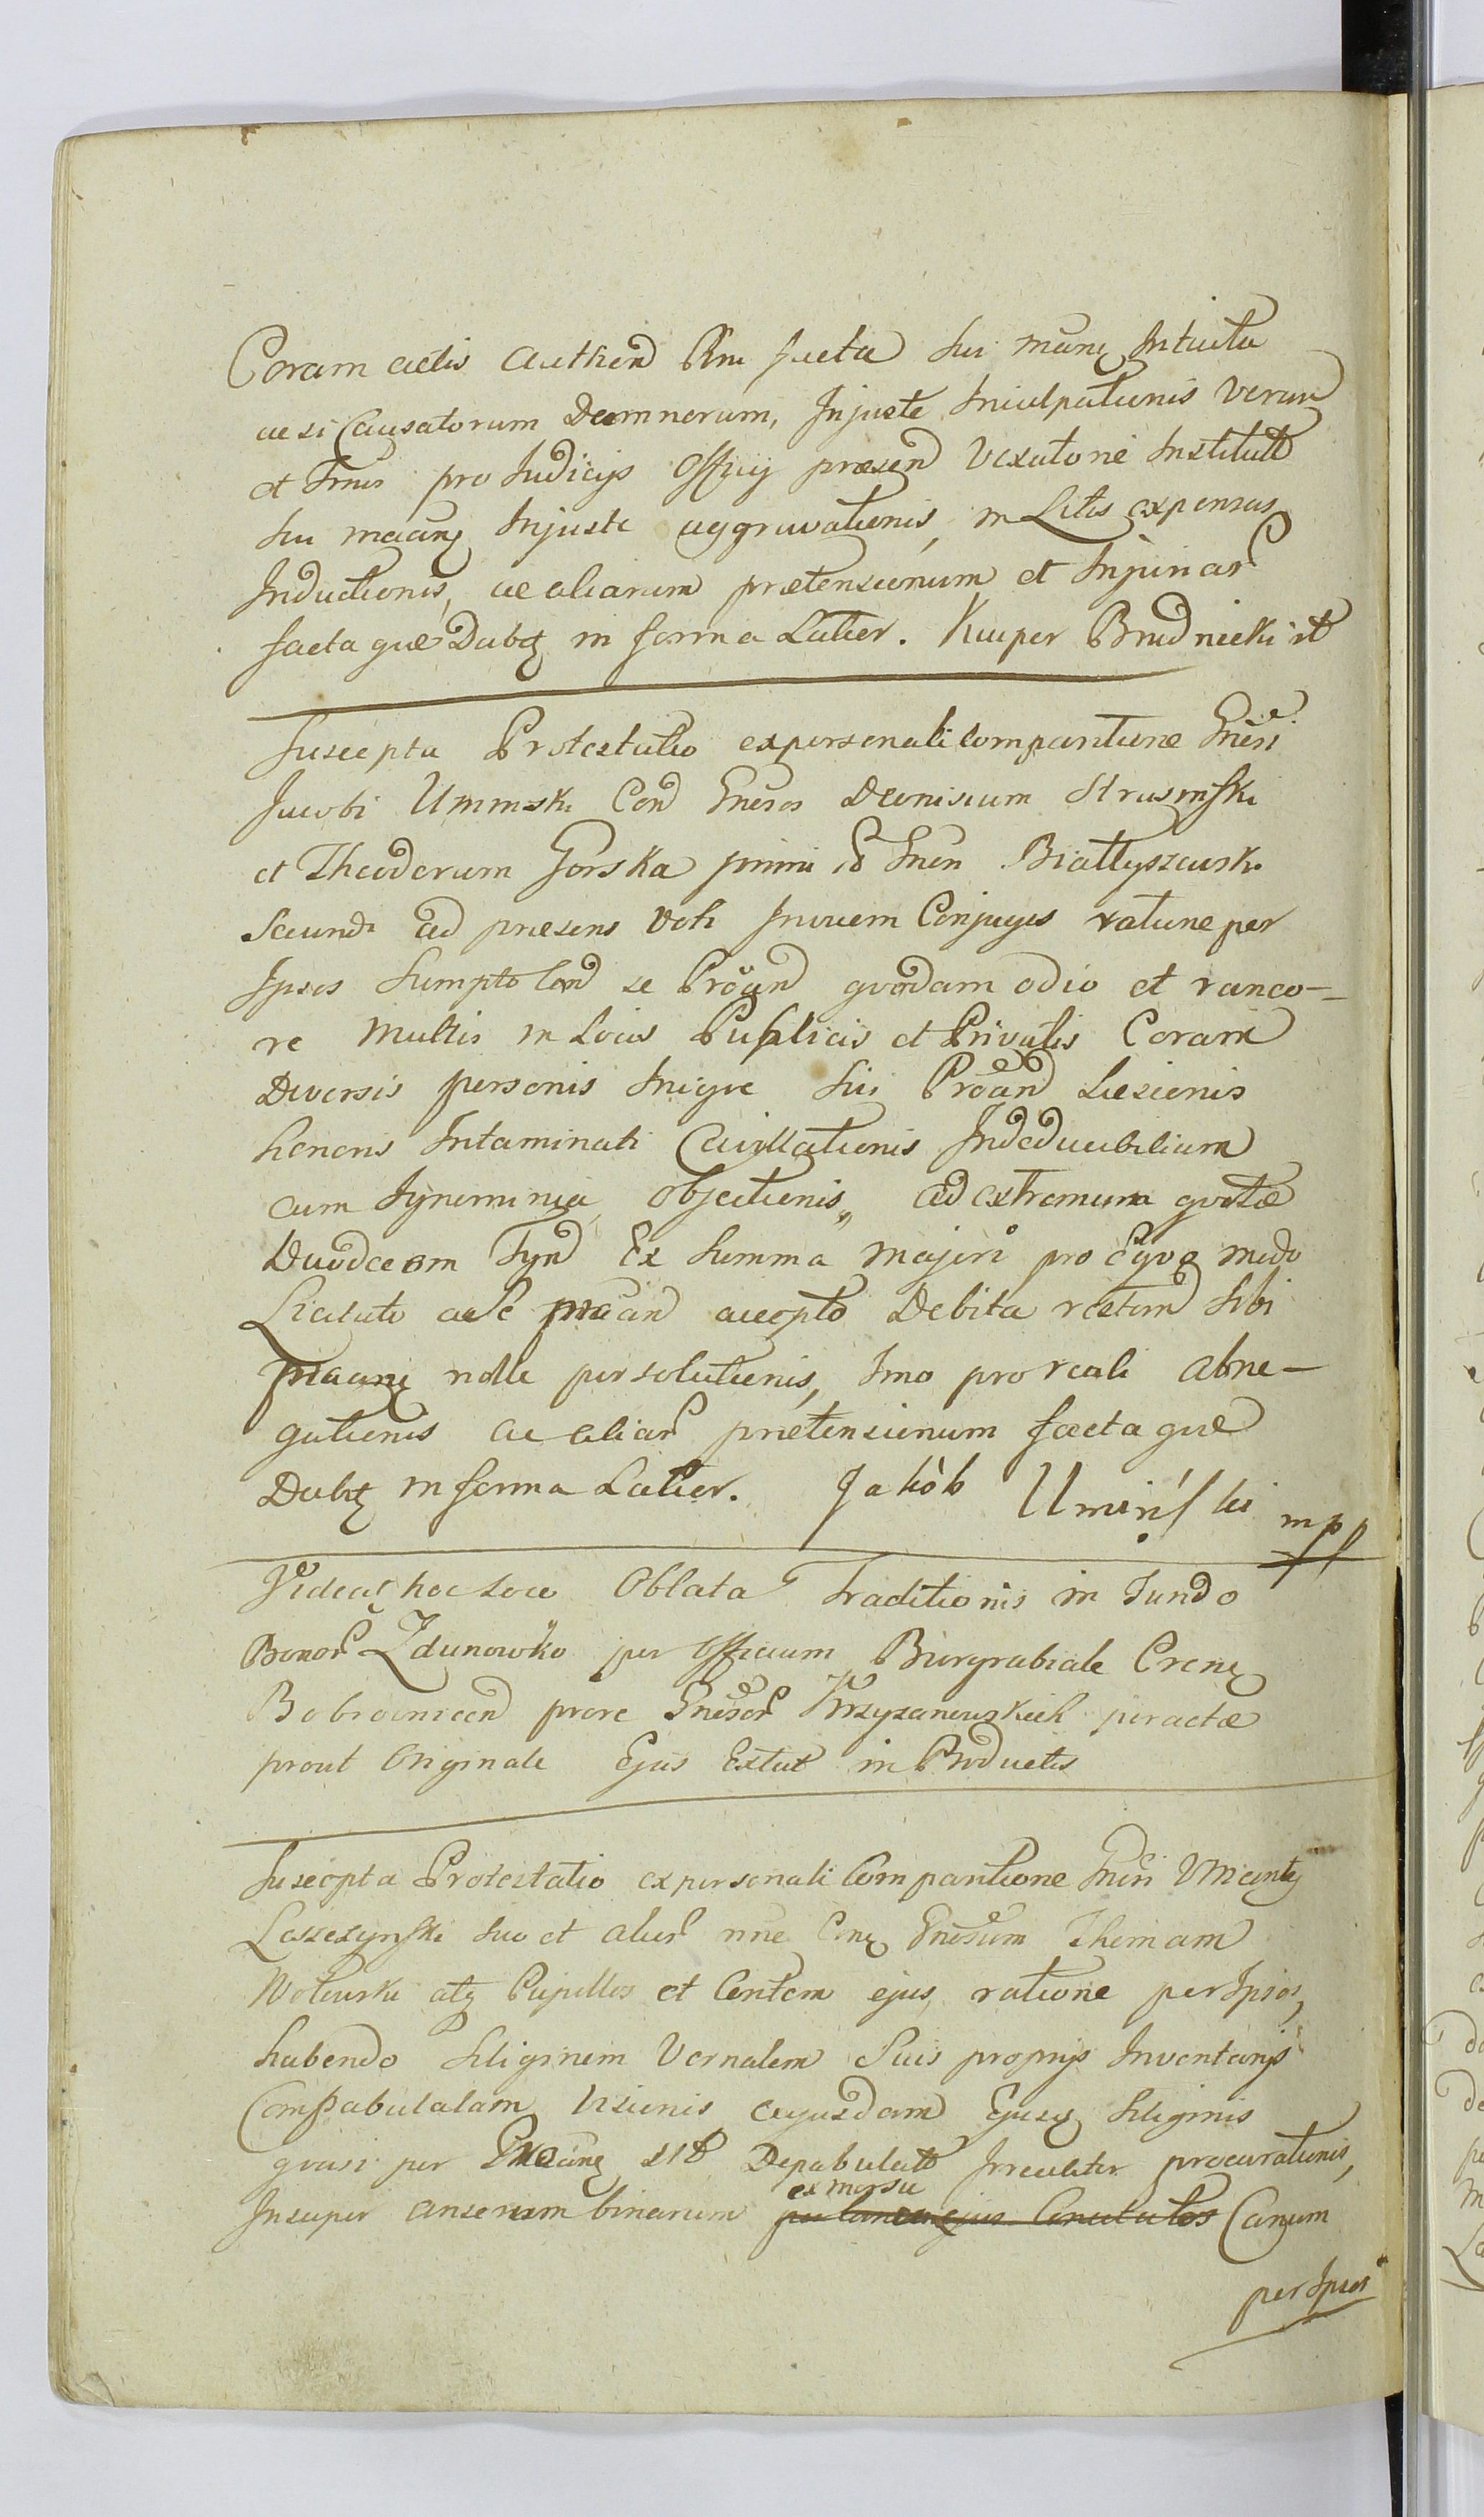 Coram actis Authen Pñn Juxta sui manq Intuitu
ac si Causatorum Damnorum, Injuste Inculpationis Verum
et Trñis pro Judicijs Officij præsen Vexatorie Institutt
sui Injuste aggravationis, in Litis expensas
Inductionis, ac aliarum prætensionum et Injuriar
facta que Dubq in forma Latior. Kacper Brudnicki
Suscepta Protestatio ex personali Compantione Gnēsi
Jacobi Uminski Con Gnēsos Deonisium Strusinski
et Theodoram Gorska primi Białłyszewski
Secundi ad præsens Voti Invicem Conjuges ratione per
Ipsos Sumpto Con se quodam odio et ranco-
re Multis in Locis Publicis et Privatis Coram
Diversis personis Inique Sui Læsionis
honoris Intaminati Cavillationis Indeducibilium
cum Ignominia objectionis, ad extremum quotæ
Duodecem Tyn Ex Summa majori pro Equo modo
Licitato ac Se accepto Debita restan Sibi
nolle persolutionis, Imo pro reali abne-
gationis ac aliar prætensionum facta que
Dubq in forma Latior. Jakób Umiński mpp
Videat hoc Loco Oblata Traditionis in Fundo
Bonor Zdunowko per Officium Burgrabiale Crenq
Bobrovnicen Gnēsor Krzyzanowskich peractæ
prout Originale Ejus Extat in Productis
Suscepta Protestatio ex personali Compantione Gnēsi Vincentij
Leszczynski suo et alior nne Gnēsum Thomam
Wolowski atq Pupillos et ejus, ratione per Ipsos,
habendo Siliginem Vernalem Suis proprijs Inventarijs
Compabulatam Visionis cujusdam Ejusq Siliginis
quasi per Depabulatt procurationis,
Insuper anserum binarum ex morsu Canum
per Ipsos